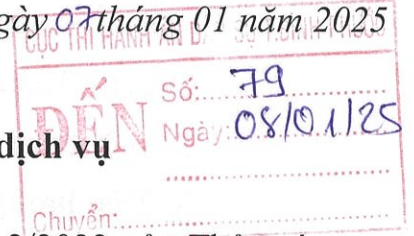 gày 07 tháng 01 năm 2025
CỤC THI HÀNH ÁN D
ĐẾN
Số: 79
Ngày: 08/01/25
dịch vụ
Chuyển: